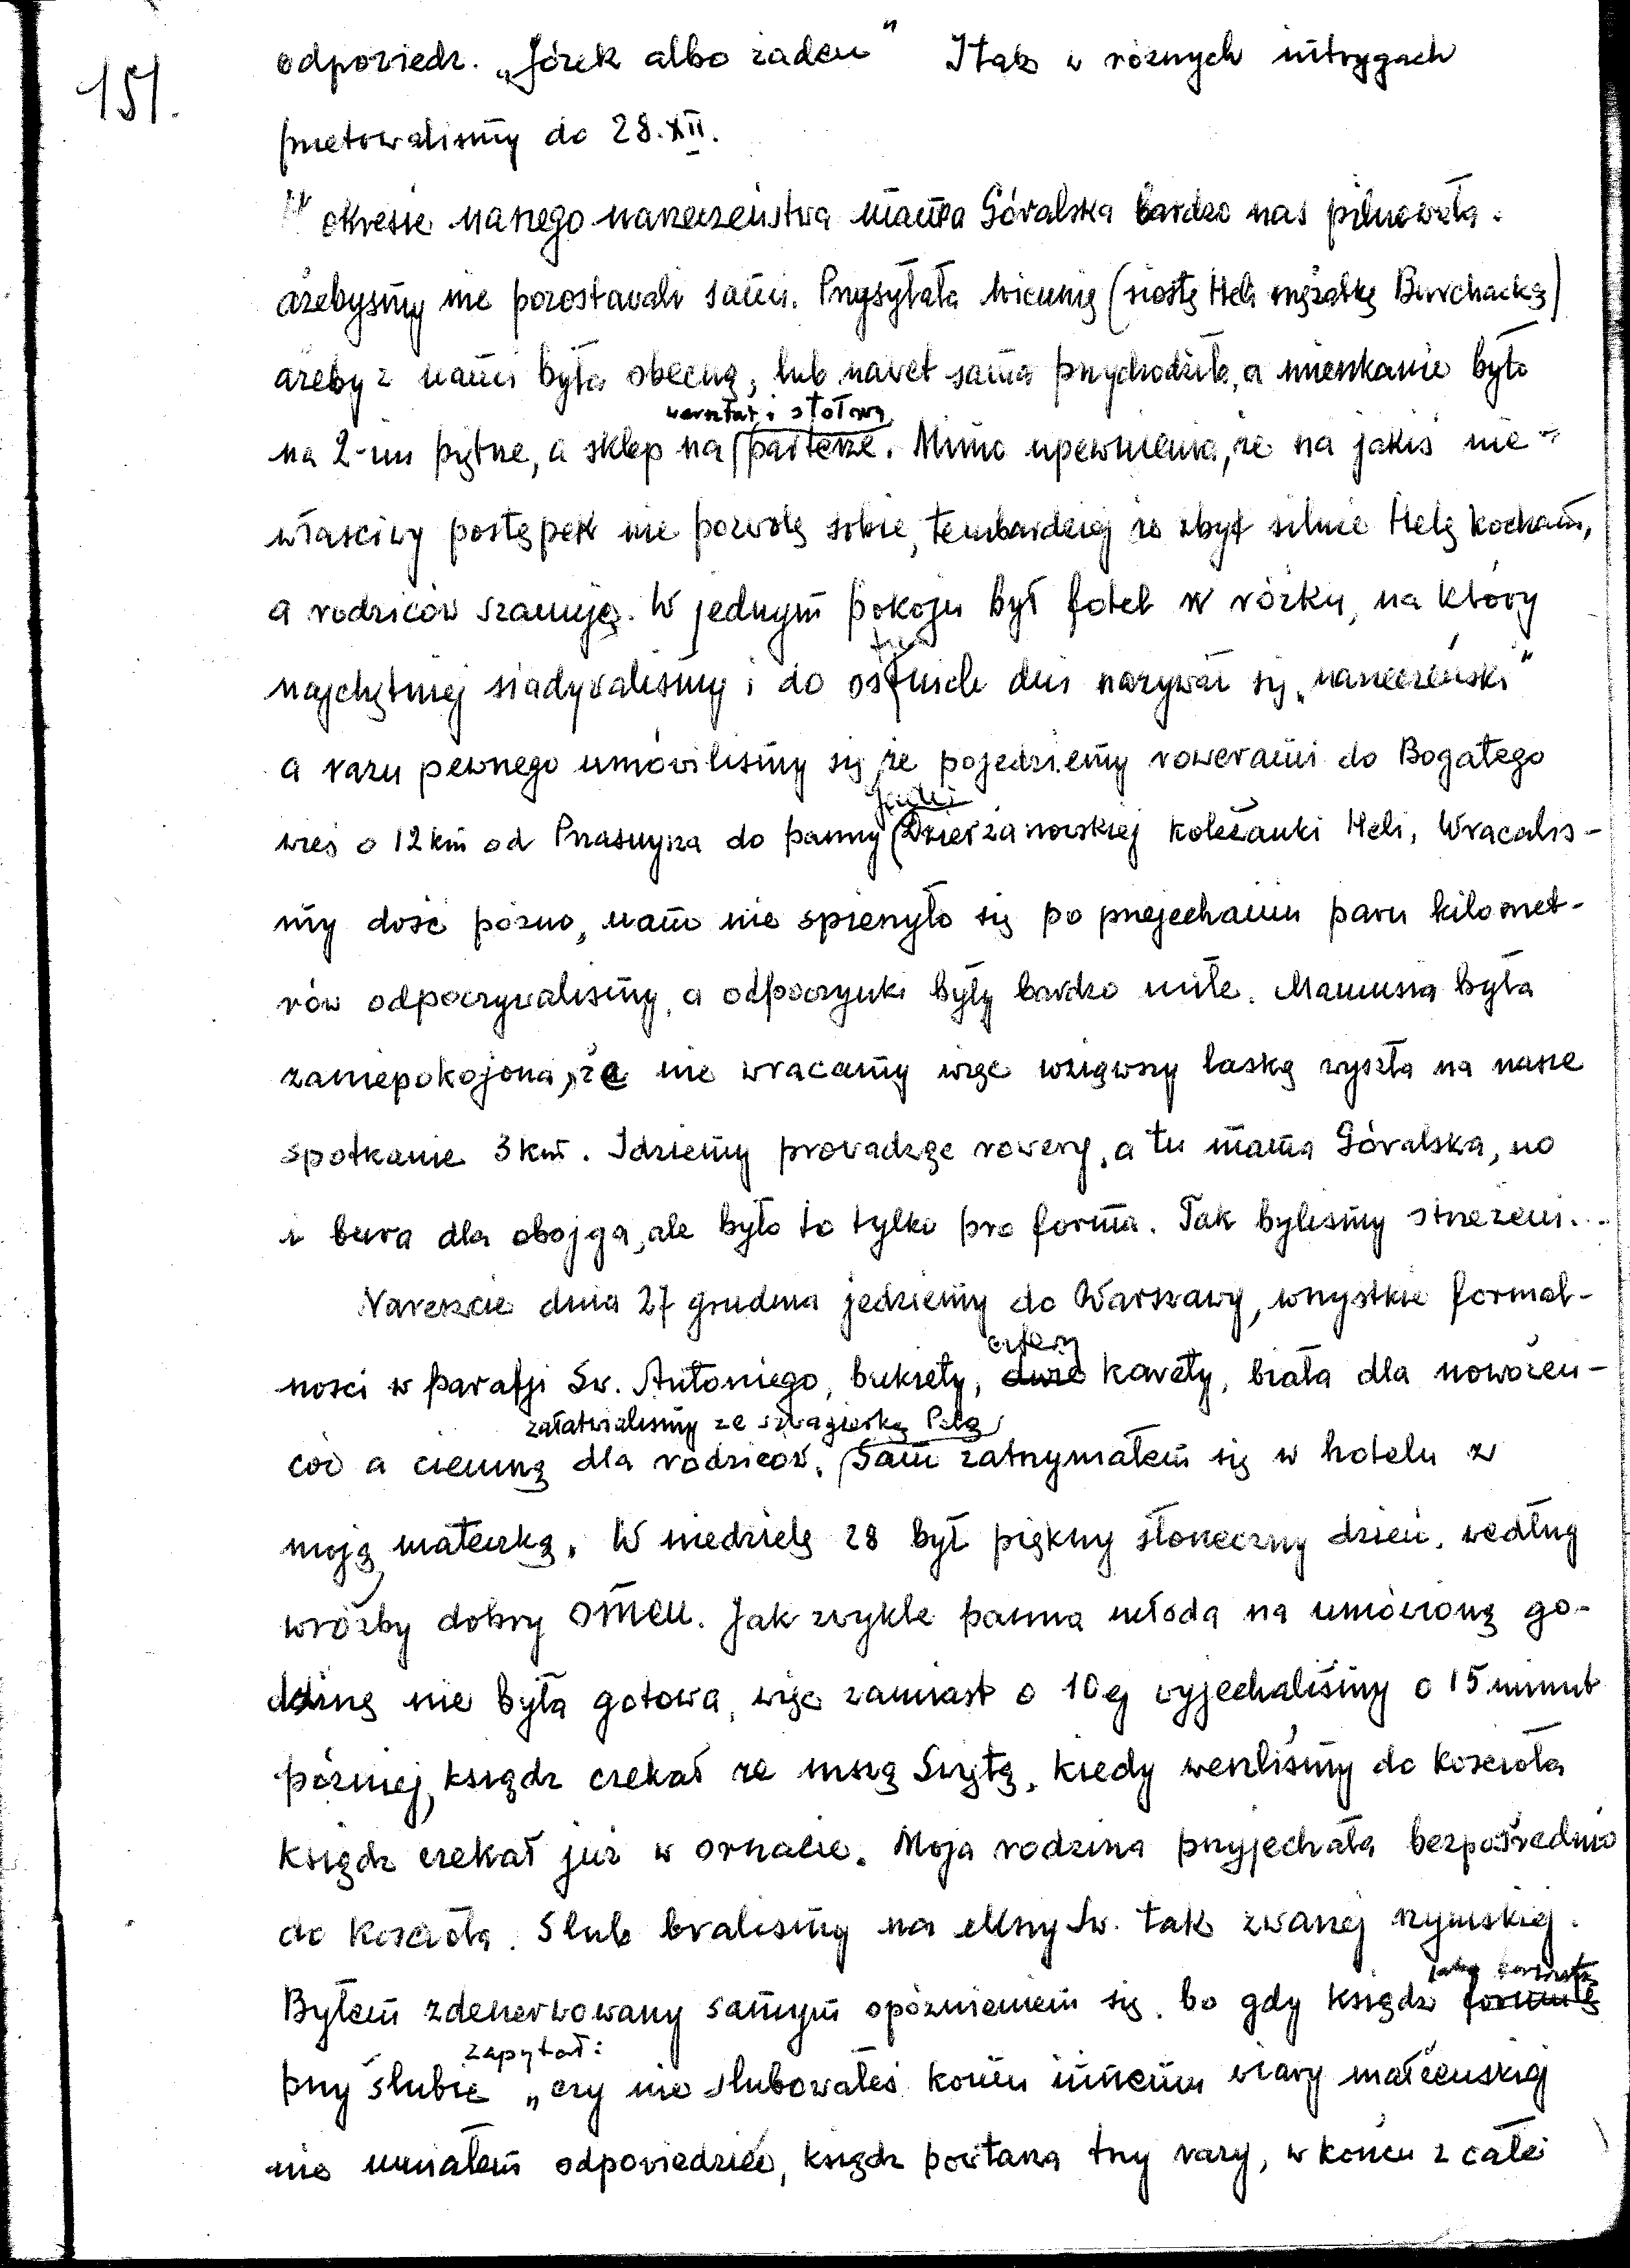 151.
odpowiedz. „Józek albo żaden" I tak w różnych intrygach
przetrwaliśmy do 28.XII.
W okresie naszego narzeczeństwa mama Góralska bardzo nas pilnowała.
ażebyśmy nie pozostawali sami. Przysyłała (siostrę Heli mężatkę Burchacką)
ażeby z nami była obecną, lub nawet sama przychodziła, a mieszkanie było
warsztat i stołowy
na 2-im piętrze, a sklep na parterze. Mimo upewnienia, że na jakiś nie-
właściwy postępek nie pozwolę sobie, tembardziej że zbyt silnie Helę kocham,
a rodziców szanuję. W jednym pokoju był fotel w rożku, na który
najchętniej siadywaliśmy i do ostatnich dni nazywał się „narzeczeński"
a razu pewnego umówiliśmy się że pojedziemy rowerami do Bogatego
Jadzi
wieś o 12 km od Przasnysza do panny Dzierżanowskiej koleżanki Heli, Wracaliś-
my dość późno, nam nie spieszyło się po przejechaniu paru kilomet-
rów odpoczywaliśmy, a odpoczynki były bardzo miłe. Mamusia była
zaniepokojona, że nie wracamy więc wziąwszy laskę wyszła na nasze
spotkanie 3 km. Idziemy prowadząc rowery, a tu mama Góralska, no
i bura dla obojga, ale było to tylko pro forma. Tak byliśmy strzeżeni...
Nareszcie dnia 27 grudnia jedziemy do Warszawy, wszystkie formal-
cztery
ności w parafji Św. Antoniego, bukiety, dwie karety, biała dla nowożeń-
załatwialiśmy ze szwagierką Polą
ców a ciemną dla rodziców. Sam zatrzymałem się w hotelu z
moją mateczką. W niedzielę 28 był piękny słoneczny dzień, według
wróżby dobry omen. Jak zwykle panna młoda na umówioną go-
dzinę nie była gotowa, więc zamiast o 10 ej wyjechaliśmy o 15 minut
później, ksiądz czekał ze mszą Świętą, kiedy weszliśmy do kościoła
ksiądz czekał już w ornacie. Moja rodzina przyjechała bezpośrednio
do kościoła. Ślub braliśmy na Mszy Św. tak zwanej rzymskiej.
Byłem zdenerwowany samym opóźnieniem się, bo gdy ksiądz formułę
zapytał:
przy ślubie „czy nie ślubowałeś komu innemu wiary małżeńskiej
nie umiałem odpowiedzieć, ksiądz powtarza trzy razy, w końcu z całej